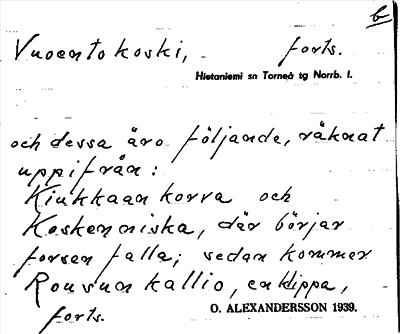 b
Vuoentokoski, forts.
Hietaniemi sn Torneå tg Norrb. l.
och dessa äro följande, räknat
uppifrån:
Kiukkaankorva och
Koskenniska, där börjar
forsen falla; sedan kommer
Rousunkallio, en klippa,
forts.
O. ALEXANDERSSON 1939.